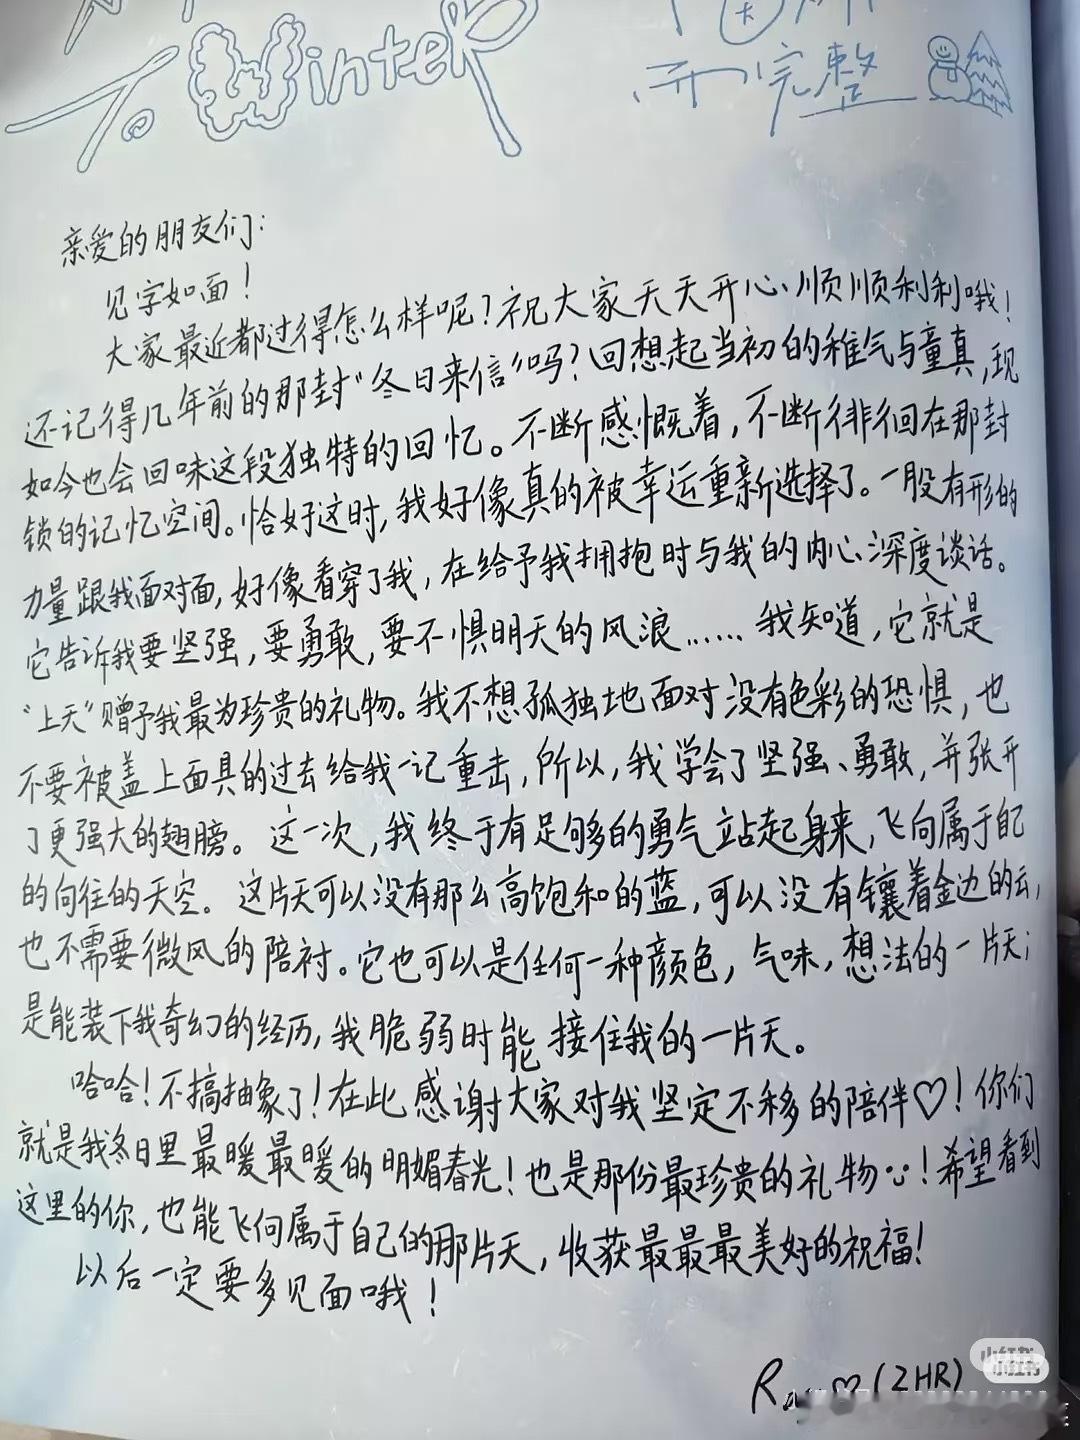 To Winter
完整
亲爱的朋友们：
见字如面！
大家最近都过得怎么样呢？祝大家天天开心、顺顺利利哦！
还记得几年前的那封“冬日来信”吗？回想起当初的稚气与童真，现
如今也会回味这段独特的回忆。不断感慨着，不断徘徊在那封
锁的记忆空间。恰好这时，我好像真的被幸运重新选择了。一股有形的
力量跟我面对面，好像看穿了我，在给予我拥抱时与我的内心深度谈话。
它告诉我要坚强，要勇敢，要不惧明天的风浪……我知道，它就是
“上天”赠予我最为珍贵的礼物。我不想孤独地面对没有色彩的恐惧，也
不要被盖上面具的过去给我一记重击，所以，我学会了坚强、勇敢，并张开
了更强大的翅膀。这一次，我终于有足够的勇气站起身来，飞向属于自己
的向往的天空。这片天可以没有那么高饱和的蓝，可以没有镶着金边的云，
也不需要微风的陪衬。它也可以是任何一种颜色，气味，想法的一片天；
是能装下我奇幻的经历，我脆弱时能接住我的一片天。
哈哈！不搞抽象了！在此感谢大家对我坚定不移的陪伴♡！你们
就是我冬日里最暖最暖的明媚春光！也是那份最珍贵的礼物！希望看到
这里的你，也能飞向属于自己的那片天，收获最最最美好的祝福！
以后一定要多见面哦！
(ZHR)
小红书
小红书